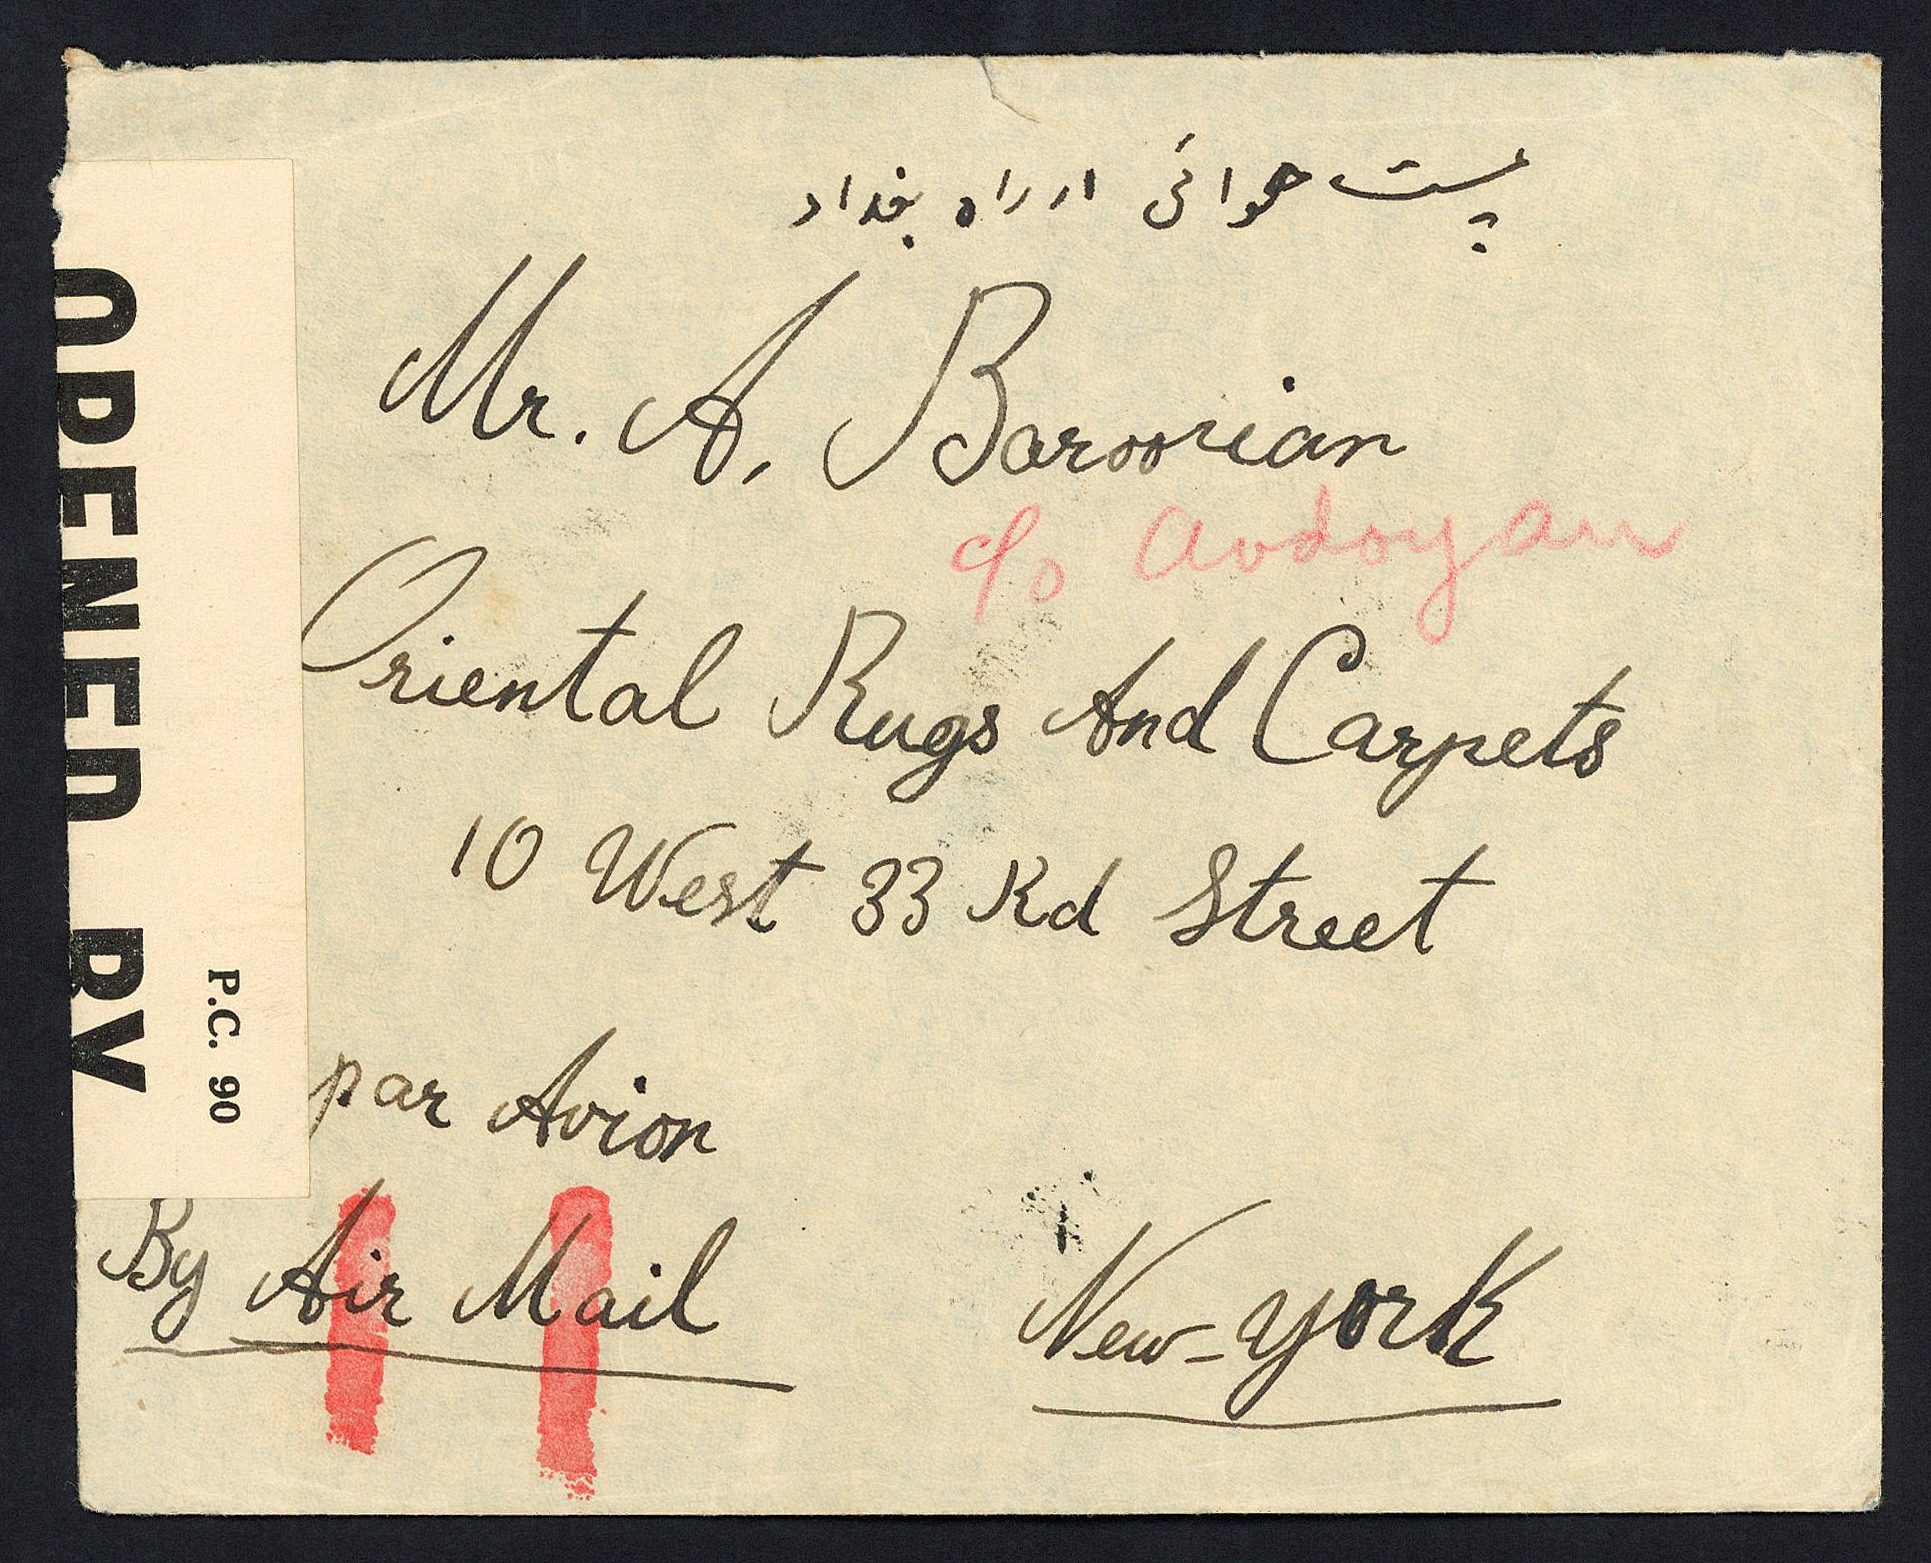 پست هوائی از راه بغداد
Mr. A. Baroonian
c/o Avdoyan
Oriental Rugs And Carpets
10 West 33 Rd Street
par Avion
By Air Mail
New-York
OPENED BY
P.C. 90